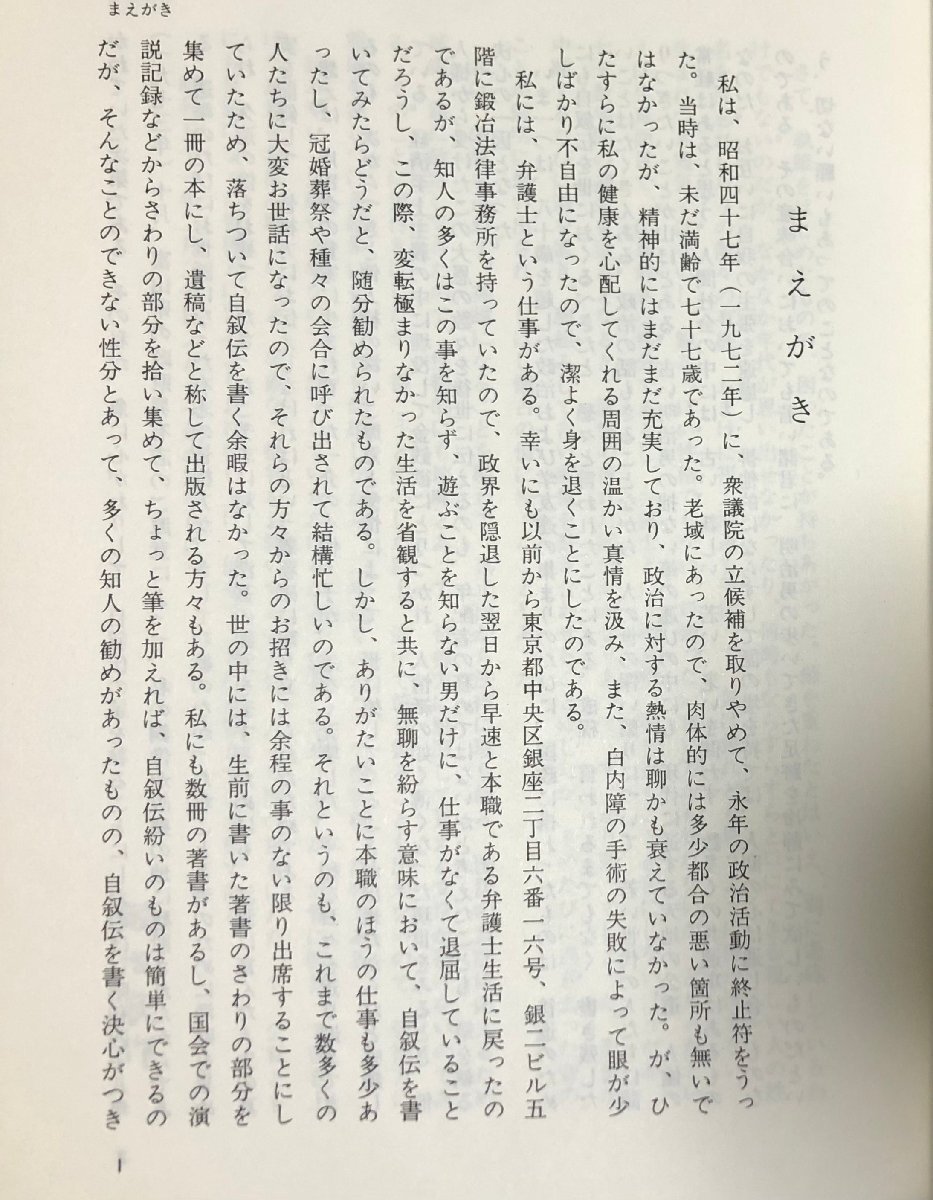 まえがき
まえがき
私は、昭和四十七年（一九七二年）に、衆議院の立候補を取りやめて、永年の政治活動に終止符をうっ
た。当時は、未だ満齢で七十七歳であった。老域にあったので、肉体的には多少都合の悪い箇所も無いで
はなかったが、精神的にはまだまだ充実しており、政治に対する熱情は聊かも衰えていなかった。が、ひ
たすらに私の健康を心配してくれる周囲の温かい真情を汲み、また、白内障の手術の失敗によって眼が少
しばかり不自由になったので、潔よく身を退くことにしたのである。
私には、弁護士という仕事がある。幸いにも以前から東京都中央区銀座二丁目六番一六号、銀二ビル五
階に鍛冶法律事務所を持っていたので、政界を隠退した翌日から早速と本職である弁護士生活に戻ったの
であるが、知人の多くはこの事を知らず、遊ぶことを知らない男だけに、仕事がなくて退屈していること
だろうし、この際、変転極まりなかった生活を省観すると共に、無聊を紛らす意味において、自叙伝を書
いてみたらどうだと、随分勧められたものである。しかし、ありがたいことに本職のほうの仕事も多少あ
ったし、冠婚葬祭や種々の会合に呼び出されて結構忙しいのである。それというのも、これまで数多くの
人たちに大変お世話になったので、それらの方々からのお招きには余程の事のない限り出席することにし
ていたため、落ちついて自叙伝を書く余暇はなかった。世の中には、生前に書いた著書のさわりの部分を
集めて一冊の本にし、遺稿などと称して出版される方々もある。私にも数冊の著書があるし、国会での演
説記録などからさわりの部分を拾い集めて、ちょっと筆を加えれば、自叙伝紛いのものは簡単にできるの
だが、そんなことのできない性分とあって、多くの知人の勧めがあったものの、自叙伝を書く決心がつき
1